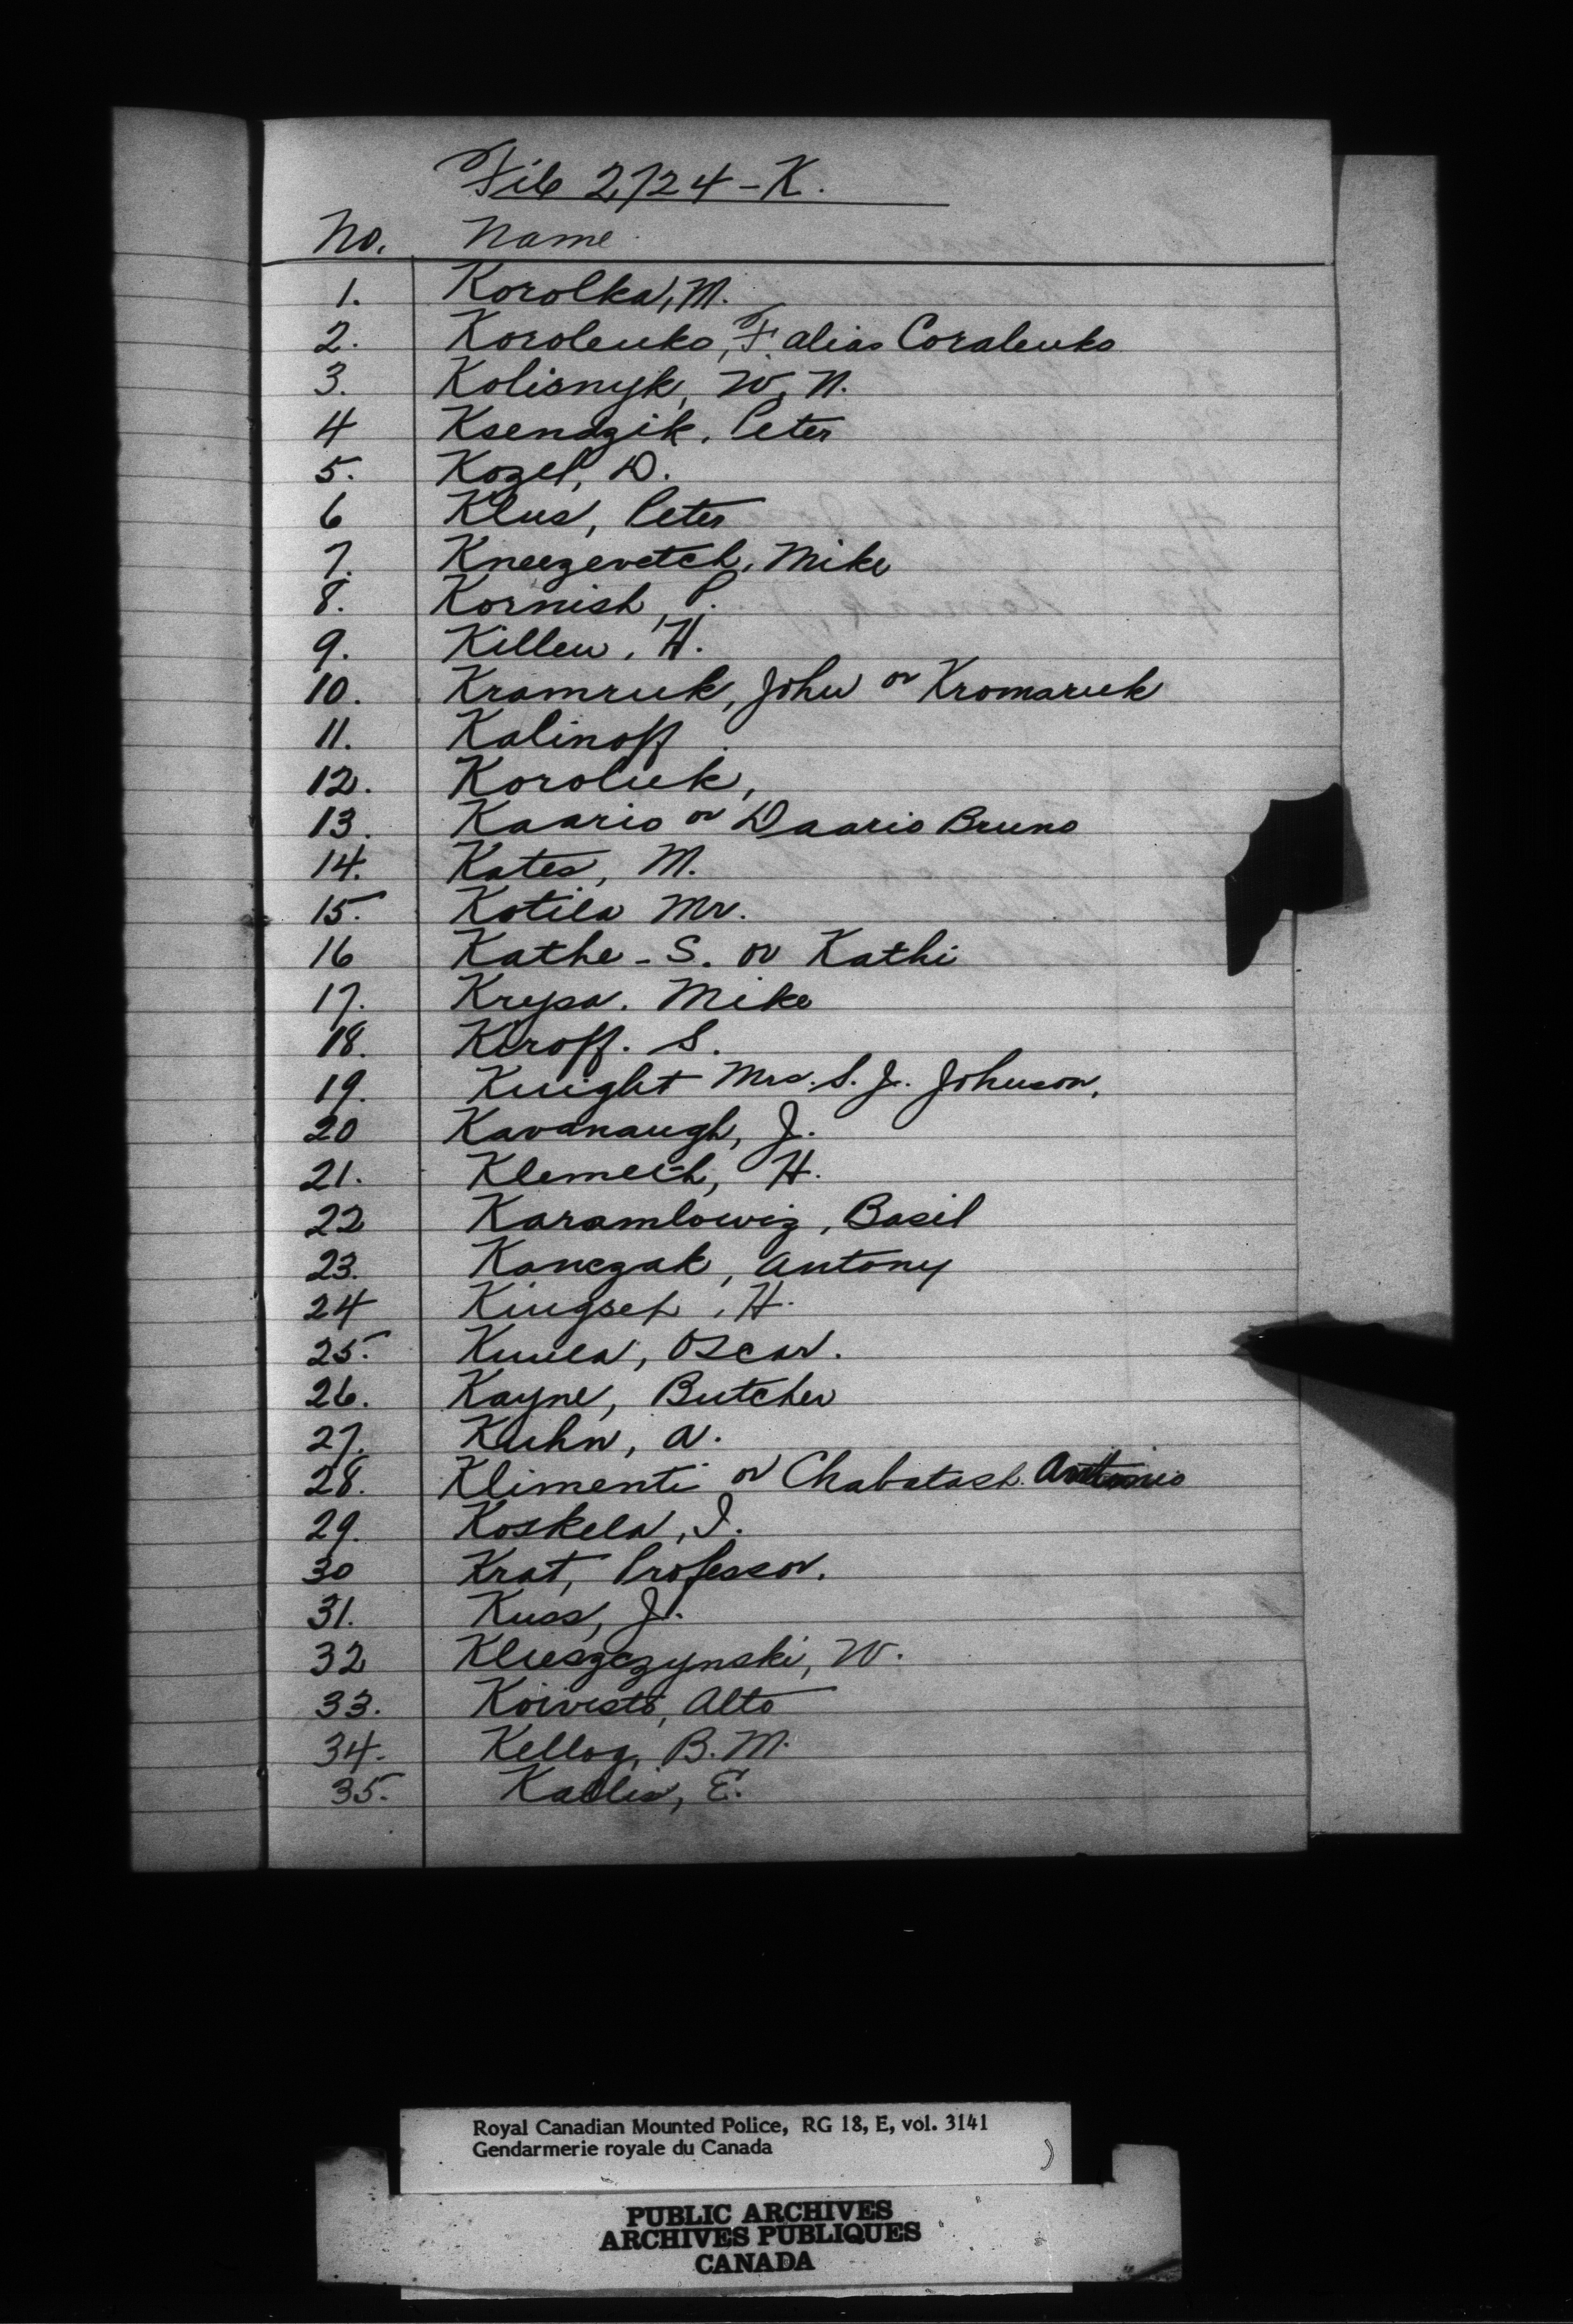 File 2724-K.
No. Name
1. Korolka, M.
2. Korolenko, F. alias Coralenko
3. Kolisnyk, W. N.
4 Ksendzik, Peter
5. Kozel, D.
6 Klus, Peter
7. Kneezevetch, Mike
8. Kornish, P.
9. Killen, H.
10. Kramruk, John or Kromaruk
11. Kalinoff
12. Koroluk,
13. Kaario or Daario Bruno
14. Kates, M.
15. Kotila Mr.
16 Kathe - S. or Kathi
17. Krysa. Mike
18. Kiroff. S.
19. Knight Mrs. S. J. Johnson.
20 Kavanaugh, J.
21. Klemech, H.
22 Karamlowiz, Basil
23. Kanczak, Antony
24 Kingsep, H.
25. Kuula, Oscar.
26. Kayne, Butcher
27. Kuhn, A.
28. Klimenti or Chabatash. Antonio
29. Koskela, I.
30 Krat, Professor.
31. Kuss, J.
32 Kluszczynski, W.
33. Koivisto, Alto
34. Kellog, B. M.
35. E.
Royal Canadian Mounted Police, RG 18, E, vol. 3141
Gendarmerie royale du Canada
PUBLIC ARCHIVES
ARCHIVES PUBLIQUES
CANADA